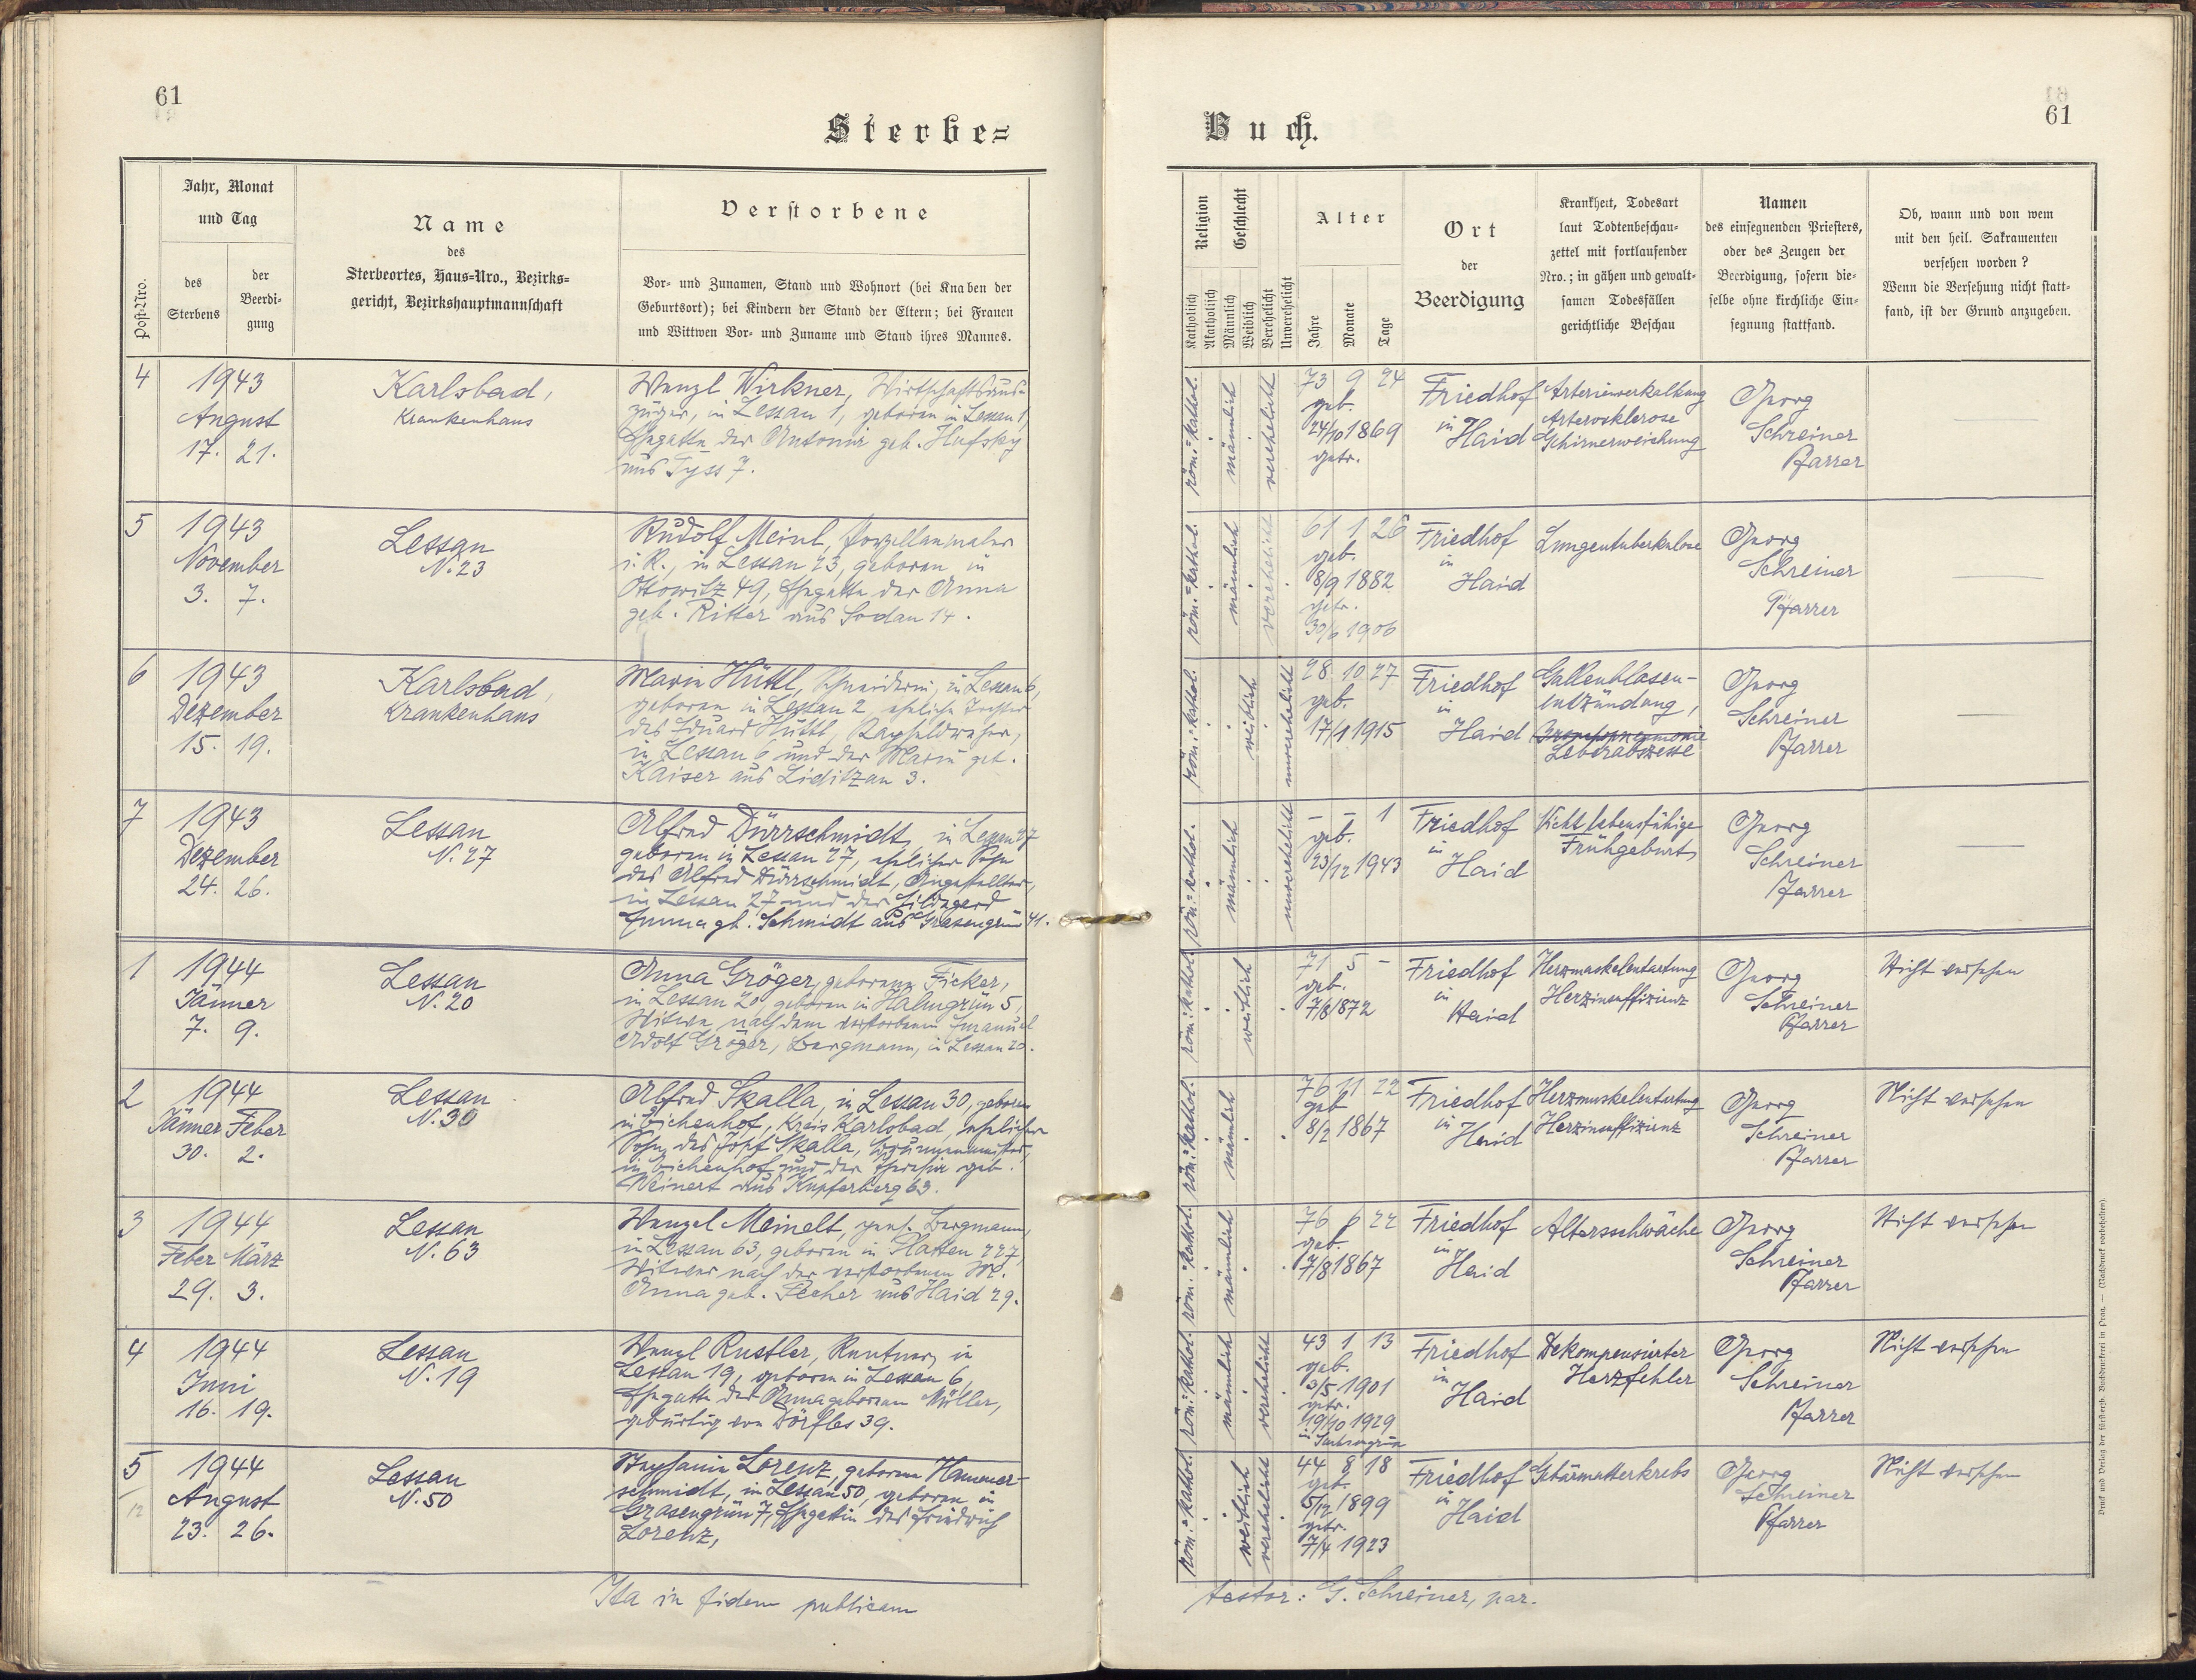 61
Sterbe=
Post-Nro.
Jahr, Monat
und Tag
des
Sterbens
der
Beerdi-
gung
Name
des
Sterbeortes, Haus-Nro., Bezirks-
gericht, Bezirkshauptmannschaft
Verstorbene
Vor- und Zunamen, Stand und Wohnort (bei Knaben der
Geburtsort); bei Kindern der Stand der Eltern; bei Frauen
und Wittwen Vor- und Zuname und Stand ihres Mannes.
4
1943
August
17. 21.
Karlsbad,
Krankenhaus
Wenzl Wirkner, Wirtschaftsaus-
züger, in Lessau 1, geboren in Lessau 1,
Ehegatte der Antonie geb. Hufsky
aus Tyss 7.
5
1943
November
3. 7.
Lessau
N. 23
Rudolf Meinl, Porzellanmaler
i. R., in Lessau 23, geboren in
Ottowitz 49, Ehegatte der Anna
geb. Ritter aus Sodau 14.
6
1943
Dezember
15. 19.
Karlsbad,
Krankenhaus
Marie Hüttl, Schneiderin, in Lessau 6,
geboren in Lessau 2, eheliche Tochter
des Eduard Hüttl,
in Lessau 6 und der Marie geb.
Kaiser aus Liditzau 3.
7
1943
Dezember
24. 26.
Lessau
N. 27
Alfred Dürrschmidt, in Lessau 27
geboren in Lessau 27, ehelicher Sohn
des Alfred Dürrschmidt, Angestellter,
in Lessau 27 und der Hildegard
Emma gb. Schmidt aus Grasengrün 41.
1
1944
Jänner
7. 9.
Lessau
N. 20
Anna Gröger, geborene Ficker,
in Lessau 20, geboren in Halmgrün 5,
Witwe nach dem verstorbenen Emanuel
Adolf Gröger, Bergmann, in Lessau 20.
2
1944
Jänner Feber
30. 2.
Lessau
N. 30
Alfred Skalla, in Lessau 30, geboren
in Eichenhof, Kreis Karlsbad, ehelicher
Sohn des Josef Skalla, Brunnenmeister,
in Eichenhof und der Theresia geb.
Weinert aus Kupferberg 63.
3
1944
Feber März
29. 3.
Lessau
N. 63
Wenzel Meinelt, pens. Bergmann,
in Lessau 63, geboren in Platten 227,
Witwer nach der verstorbenen M.
Anna geb. Pecher aus Haid 29.
4
1944
Juni
16. 19.
Lessau
N. 19
Wenzl Rustler, Rentner, in
Lessau 19, geboren in Lessau 6,
Ehegatte der Anna geborenen Müller,
gebürtig von Dörfles 39.
5
/12
1944
August
23. 26.
Lessau
N. 50
Stephanie Lorenz, geborene Hammer-
schmidt, in Lessau 50, geboren in
Grasengrün 7, Ehegattin des Friedrich
Lorenz,
Ita in fidem publicam
61
Buch.
Religion
Geschlecht
Katholisch
Akatholisch
Männlich
Weiblich
Verehelicht
Unverehelicht
Alter
Jahre
Monate
Tage
Ort
der
Beerdigung
Krankheit, Todesart
laut Todtenbeschau-
zettel mit fortlaufender
Nro.; in gähen und gewalt-
samen Todesfällen
gerichtliche Beschau
Namen
des einsegnenden Priesters,
oder des Zeugen der
Beerdigung, sofern die-
selbe ohne kirchliche Ein-
segnung stattfand.
Ob, wann und von wem
mit den heil. Sakramenten
versehen worden?
Wenn die Versehung nicht statt-
fand, ist der Grund anzugeben.
röm.=kathol.
männlich
verehelicht
73 9 24
geb.
24/10 1869
getr.
Friedhof
in
Haid
Arterienverkalkung
Arterosklerose
Gehirnerweichung
Georg
Schreiner
Pfarrer
röm.=kathol.
männlich
verehelicht
61 1 26
geb.
8/9 1882
getr.
30/6 1906
Friedhof
in
Haid
Lungentuberkulose
Georg
Schreiner
Pfarrer
röm.=kathol.
weiblich
unverehelicht
28 10 27
geb.
17/1 1915
Friedhof
in
Haid
Gallenblasen-
entzündung,
Bronchopneumonie
Leberabszesse
Georg
Schreiner
Pfarrer
röm.=kathol.
männlich
unverehelicht
- - 1
geb.
23/12 1943
Friedhof
in
Haid
Nicht lebensfähige
Frühgeburt
Georg
Schreiner
Pfarrer
röm.=kathol.
weiblich
71 5 -
geb.
7/8 1872
Friedhof
in
Haid
Herzmuskelentartung
Herzinsuffizienz
Georg
Schreiner
Pfarrer
Nicht versehen
röm.=kathol.
männlich
76 11 22
geb.
8/2 1867
Friedhof
in
Haid
Herzmuskelentartung
Herzinsuffizienz
Georg
Schreiner
Pfarrer
Nicht versehen
röm.=kathol.
männlich
76 6 22
geb.
7/8 1867
Friedhof
in
Haid
Altersschwäche
Georg
Schreiner
Pfarrer
Nicht versehen
röm.=kathol.
männlich
verehelicht
43 1 13
geb.
3/5 1901
getr.
19/10 1929
in
Friedhof
in
Haid
Dekompensierter
Herzfehler
Georg
Schreiner
Pfarrer
Nicht versehen
röm.=kathol.
weiblich
verehelicht
44 8 18
geb.
5/12 1899
getr.
7/4 1923
Friedhof
in
Haid
Gebärmutterkrebs
Georg
Schreiner
Pfarrer
Nicht versehen
testor: G. Schreiner, par.
Druck und Verlag der fürsterzb. Buchdruckerei in Prag. — (Nachdruck vorbehalten).